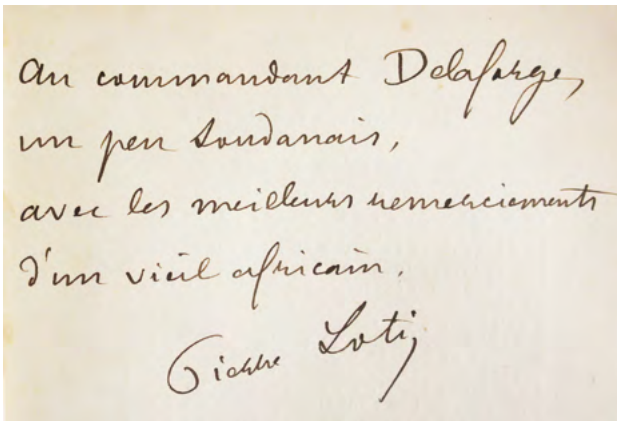 Au commandant Delaforge,
un peu soudanais,
avec les meilleurs remerciements
d'un vieil africain.
Pierre Loti